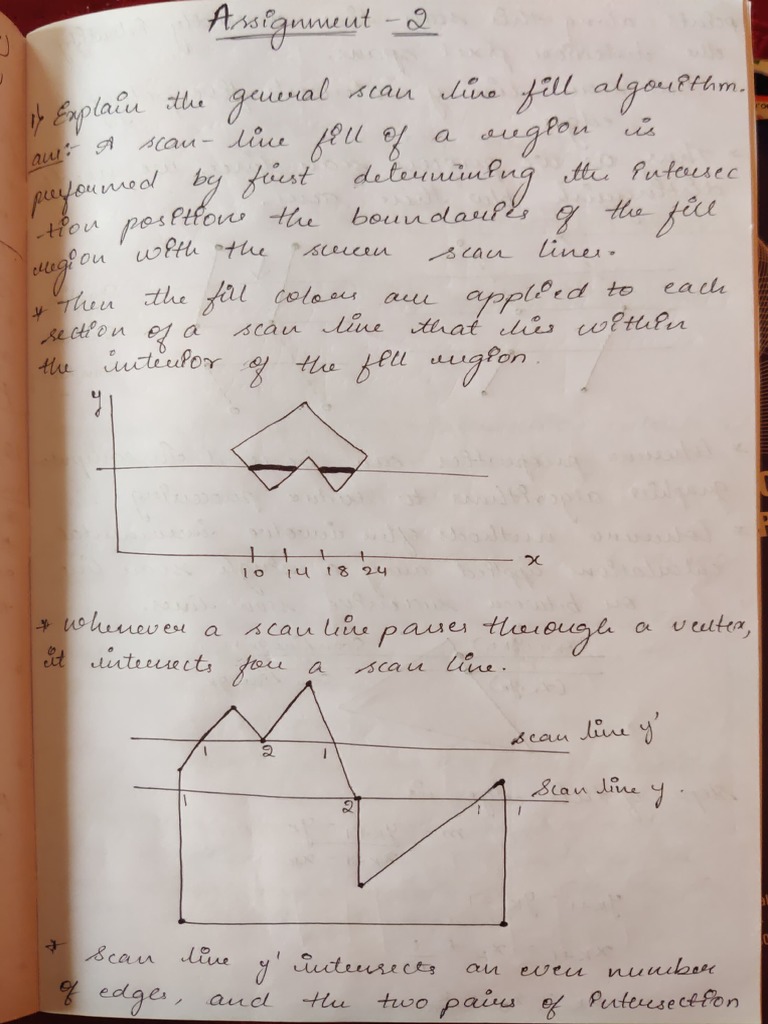 Assignment - 2
1) Explain the general scan line fill algorithm.
ans:- A scan-line fill of a region is
performed by first determining the intersec
tion positions the boundaries of the fill
region with the screen scan lines.
* Then the fill colours are applied to each
section of a scan line that lies within
the interior of the fill region.
y
x
10 14 18 24
* Whenever a scan line passes through a vertex,
it intersects for a scan line.
scan line y'
1 2 1
scan line y.
1 2 1 1
* Scan line y' intersects an even number
of edges, and the two pairs of intersection